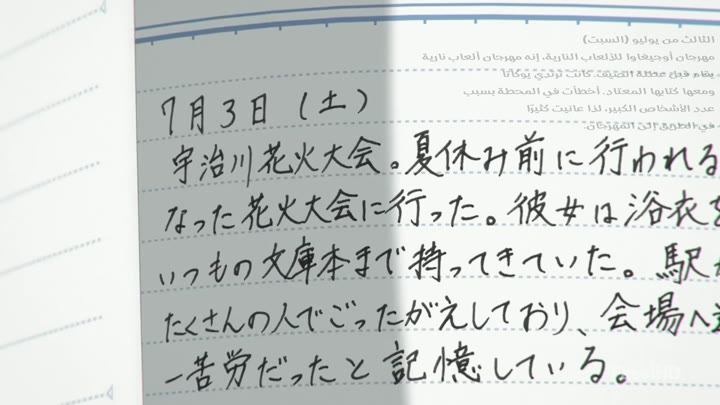 الثالث من يوليو (السبت)
مهرجان أوجيغاوا للألعاب النارية، إنه مهرجان ألعاب نارية
يقام قبل عطلة الصيف، كانت ترتدي يوكاتا
ومعها كتابها المعتاد. أخطأت في المحطة بسبب
عدد الأشخاص الكبير، لذا عانيت كثيرًا
في الطريق إلى المهرجان.
7月3日（土）
宇治川花火大会。夏休み前に行われる
なった花火大会に行った。彼女は浴衣を
いつもの文庫本まで持ってきていた。駅
たくさんの人でごったがえしており、会場へ
一苦労だったと記憶している。